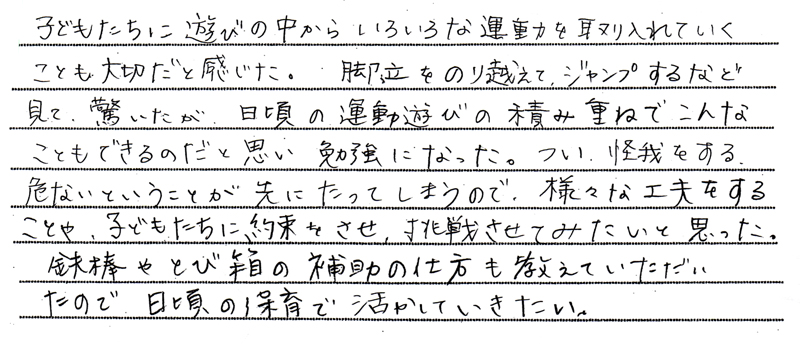 子どもたちに遊びの中からいろいろな運動を取り入れていく
ことも大切だと感じた。脚立をのり越えて、ジャンプするなど
見て、驚いたが、日頃の運動遊びの積み重ねでこんな
こともできるのだと思い勉強になった。つい、怪我をする、
危ないということが先にたってしまうので、様々な工夫をする
ことや、子どもたちに、約束をさせ、挑戦させてみたいと思った。
鉄棒やとび箱の補助の仕方も教えていただい
たので日頃の保育で活かしていきたい。